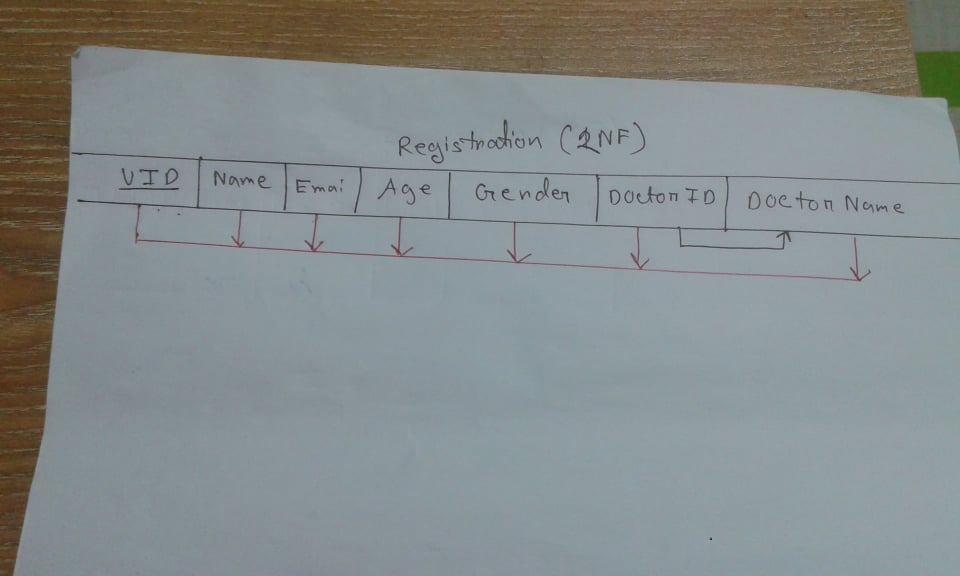 Registration (2NF)
UID Name Emai Age Gender Doctor ID Doctor Name